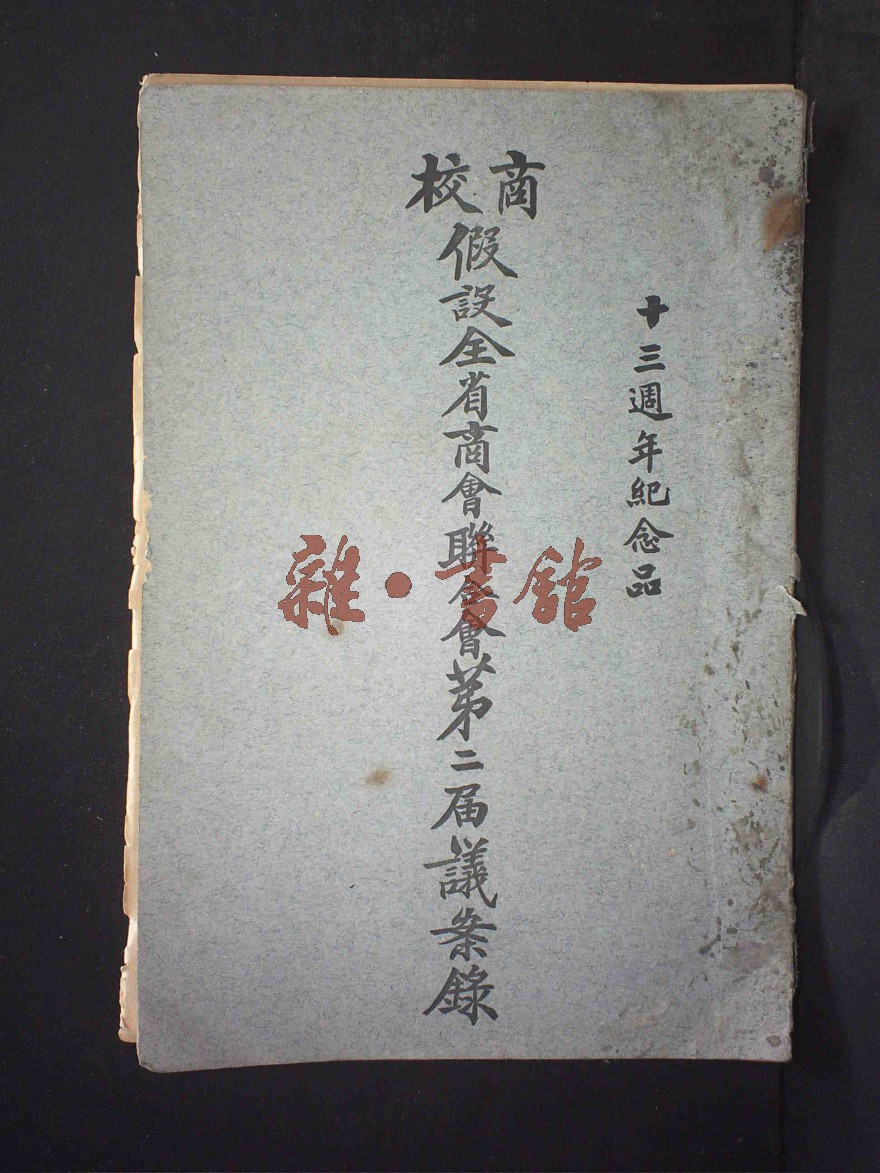 十三週年紀念品
商校假設全省商會聯合會第二届議案錄
雜·書舘